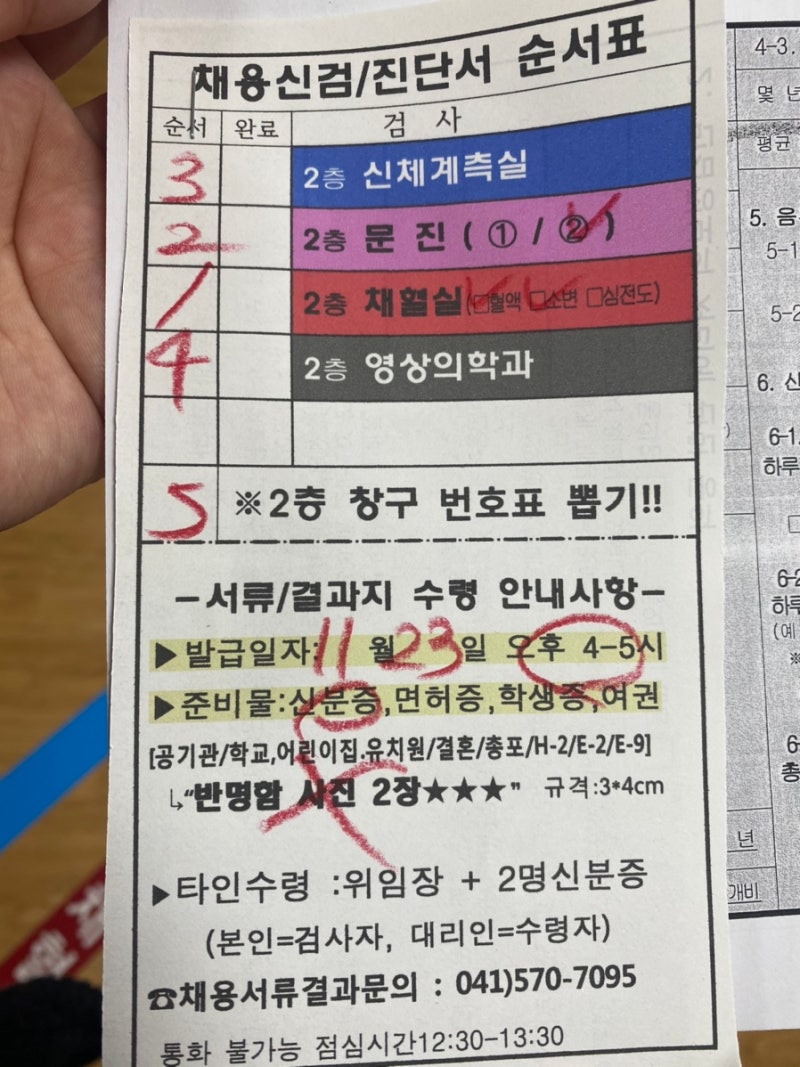 채용신검/진단서 순서표
순서 완료 검 사
3 2층 신체계측실
2 2층 문 진 ( ① / ② )
1 2층 채혈실(□혈액 □소변 □심전도)
4 2층 영상의학과
5 ※2층 창구 번호표 뽑기!!
-서류/결과지 수령 안내사항-
▶발급일자: 11월 23일 오후 4-5시
▶준비물:신분증,면허증,학생증,여권
[공기관/학교,어린이집,유치원/결혼/총포/H-2/E-2/E-9]
↳"반명함 사진 2장★★★" 규격:3*4cm
▶타인수령 :위임장 + 2명신분증
(본인=검사자, 대리인=수령자)
☎채용서류결과문의 : 041)570-7095
통화 불가능 점심시간12:30-13:30
4-3.
몇 년
평균
5. 음
5-1
5-2
6. 신
6-1.
하루
6-2
하루
(예
6-
총
년
개비